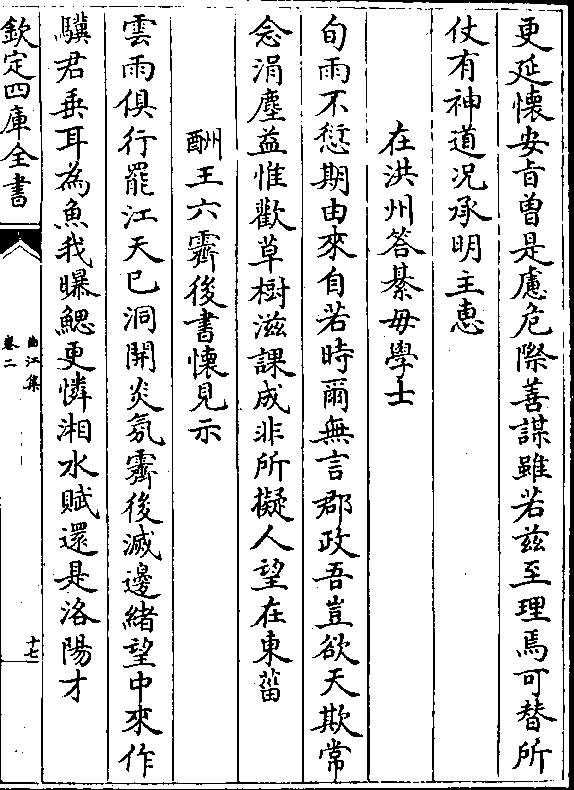 更延懷安㫖曽是慮危際善謀雖若兹至理焉可替所
仗有神道況承明主恵
在洪州答綦毋學士
旬雨不愆期由來自若時爾無言郡政吾豈欲天欺常
念涓塵益惟歡草樹滋課成非所擬人望在東菑
酬王六霽後書懷見示
雲雨俱行罷江天已洞開炎氛霽後滅邊緒望中來作
驥君垂耳為魚我曝鰓更憐湘水賦還是洛陽才
欽定四庫全書
曲江集
卷二
十七